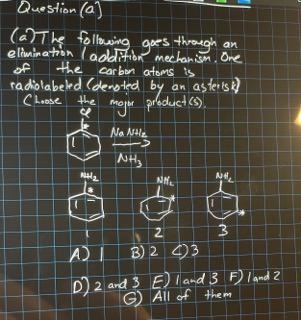 Question (a)
(a) The following goes through an
elimination / addition mechanism. One
of the carbon atoms is
radiolabeled (denoted by an asterisk)
Choose the major product(s)
Cl
*
NaNH₂
NH₃
NH₂ NH₂ NH₂
* * *
1 2 3
A) 1 B) 2 C) 3
D) 2 and 3 E) 1 and 3 F) 1 and 2
G) All of them